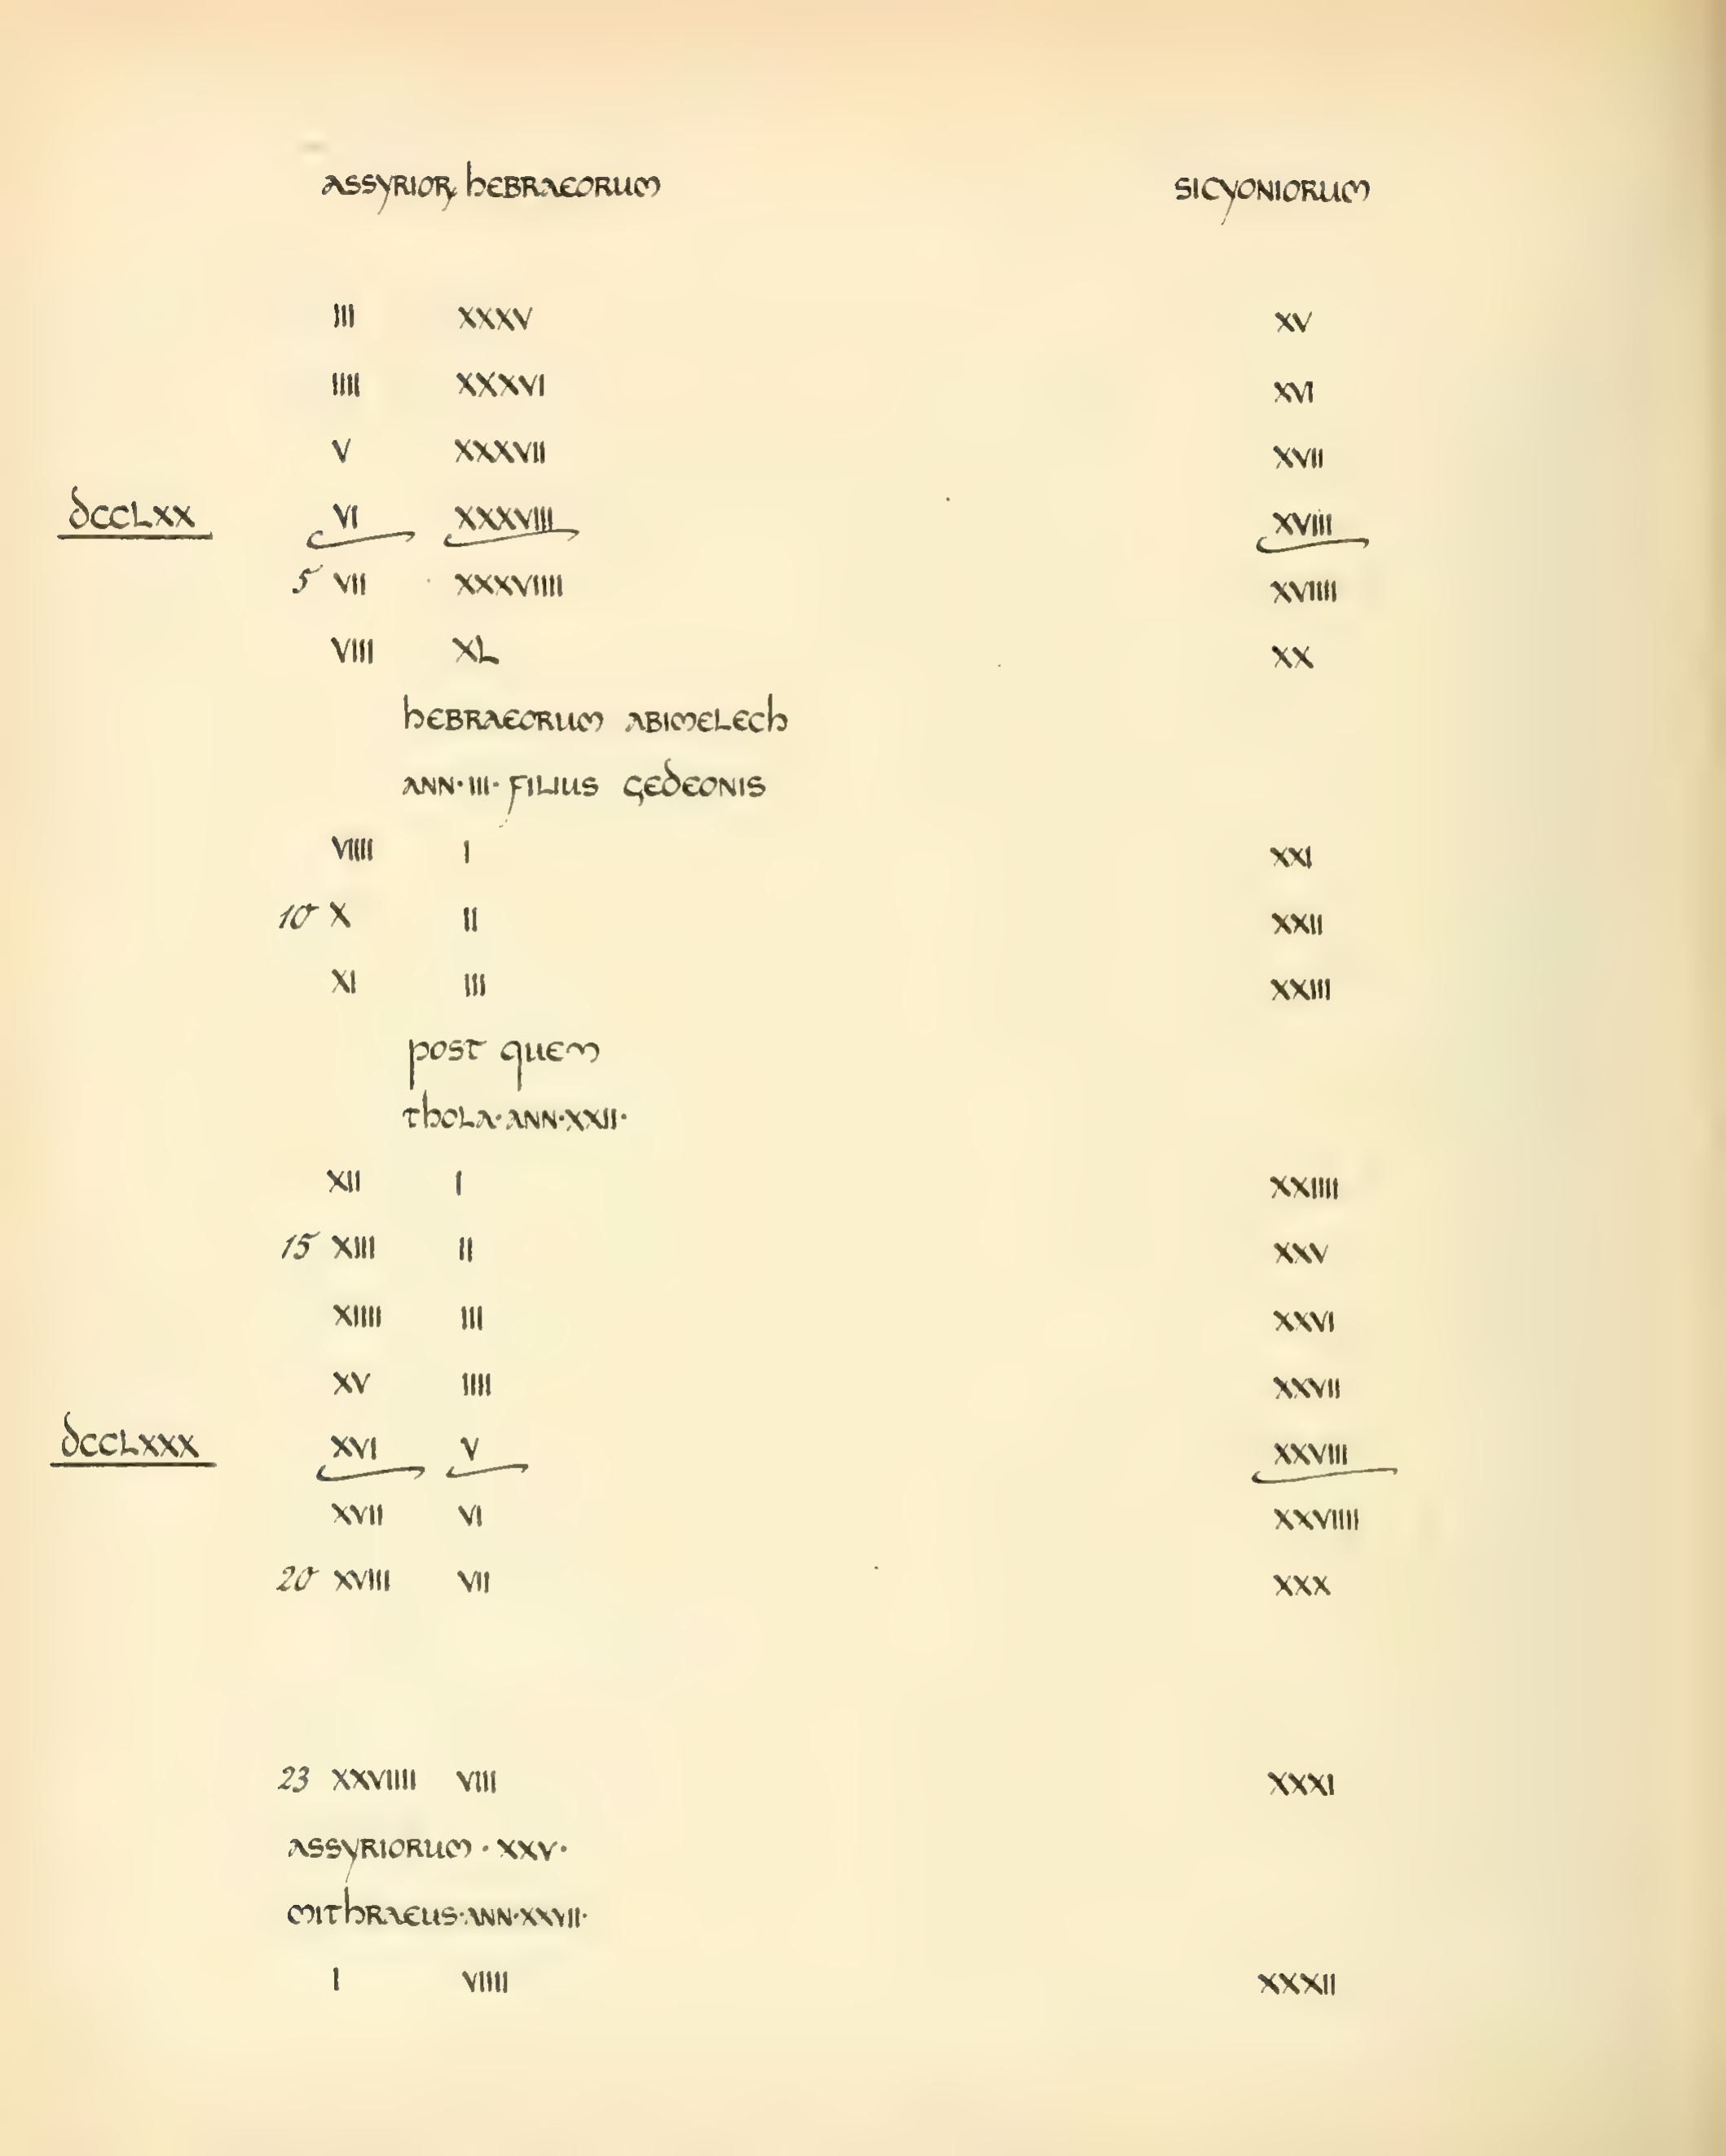 ASSYRIOR, hEBRAEORUM SICYONIORUM
III XXXV XV
IIII XXXVI XVI
V XXXVII XVII
dCCLXX VI XXXVIII XVIII
5 VII XXXVIIII XVIIII
VIII XL XX
hEBRAEORUM ABIMELECh
ANN·III· FILIUS GEdEONIS
VIIII I XXI
10 X II XXII
XI III XXIII
POST QUEM
ThOLA·ANN·XXII·
XII I XXIIII
15 XIII II XXV
XIIII III XXVI
XV IIII XXVII
dCCLXXX XVI V XXVIII
XVII VI XXVIIII
20 XVIII VII XXX
23 XXVIIII VIII XXXI
ASSYRIORUM · XXV·
MIThRAEUS·ANN·XXVII·
I VIIII XXXII